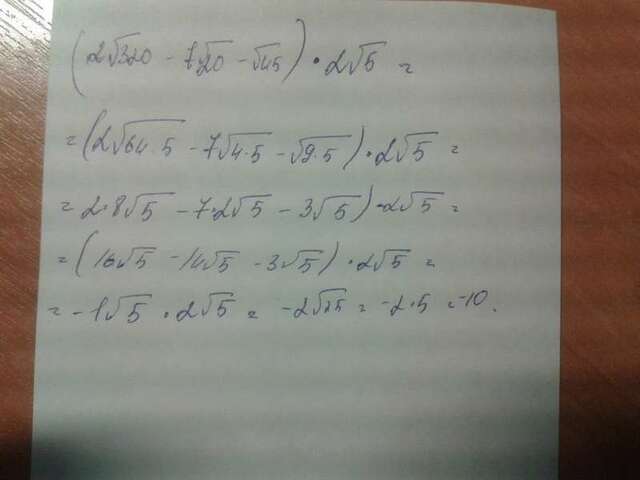 (2√320 - 7√20 - √45) · 2√5 =
= (2√64·5 - 7√4·5 - √9·5) · 2√5 =
= 2·8√5 - 7·2√5 - 3√5) · 2√5 =
= (16√5 - 14√5 - 3√5) · 2√5 =
= -1√5 · 2√5 = -2√25 = -2·5 = -10.